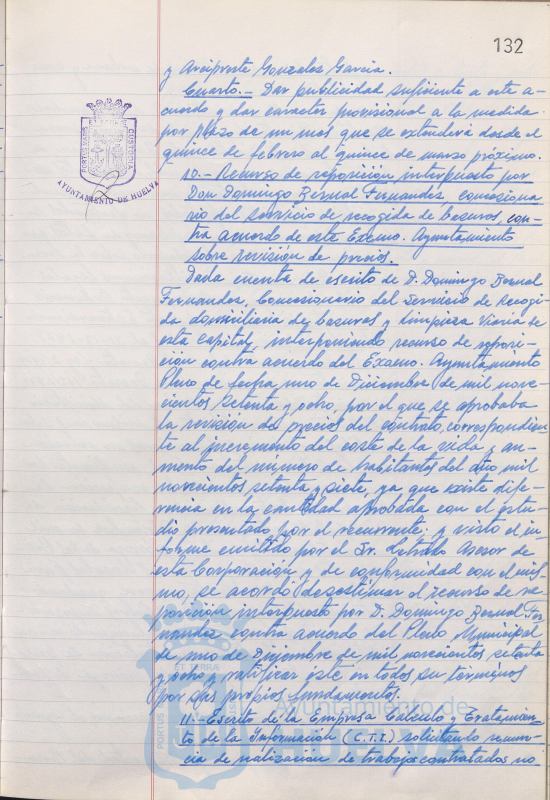 132
y Arcipreste Gonzalez Garcia.
Cuarto.- Dar publicidad suficiente a este a-
cuerdo y dar caracter provisional a la medida
por plazo de un mes que se extenderá desde el
quince de febrero al quince de marzo próximo.
10.- Recurso de reposición interpuesto por
Don Domingo Bernal Fernandez, concesiona-
rio del servicio de recogida de basuras, con-
tra acuerdo de este Excmo. Ayuntamiento
sobre revisión de precios.
Dada cuenta de escrito de D. Domingo Bernal
Fernandez, Concesionario del Servicio de Recogi-
da domiciliaria de basuras y limpieza Viaria de
esta capital, interponiendo recurso de reposi-
ción contra acuerdo del Excmo. Ayuntamiento
Pleno de fecha uno de Diciembre de mil nove-
cientos setenta y ocho, por el que se aprobaba
la revisión de precios del contrato, correspondien-
te al incremento del coste de la vida y au-
mento del número de habitantes del año mil
novecientos setenta y siete, ya que existe dife-
rencia en la cantidad aprobada con el estu-
dio presentado por el recurrente; y visto el in-
forme emitido por el Sr. Letrado Asesor de
esta Corporación y de conformidad con el mis-
mo, se acordó desestimar el recurso de re-
posición interpuesto por D. Domingo Bernal Fer-
nandez contra acuerdo del Pleno Municipal
de uno de Diciembre de mil novecientos setenta
y ocho y ratificar éste en todos su términos
por sus propios fundamentos.
11.- Escrito de la Empresa Calculo y Tratamien-
to de la Información (C.T.I.) solicitando renun-
cia de realización de trabajos contratados no
PORTUS MARIS
ET TERRAE
CUSTODIA
AYUNTAMIENTO DE HUELVA
PORTUS
ET TERRAE
Ayuntamiento de
HUELVA